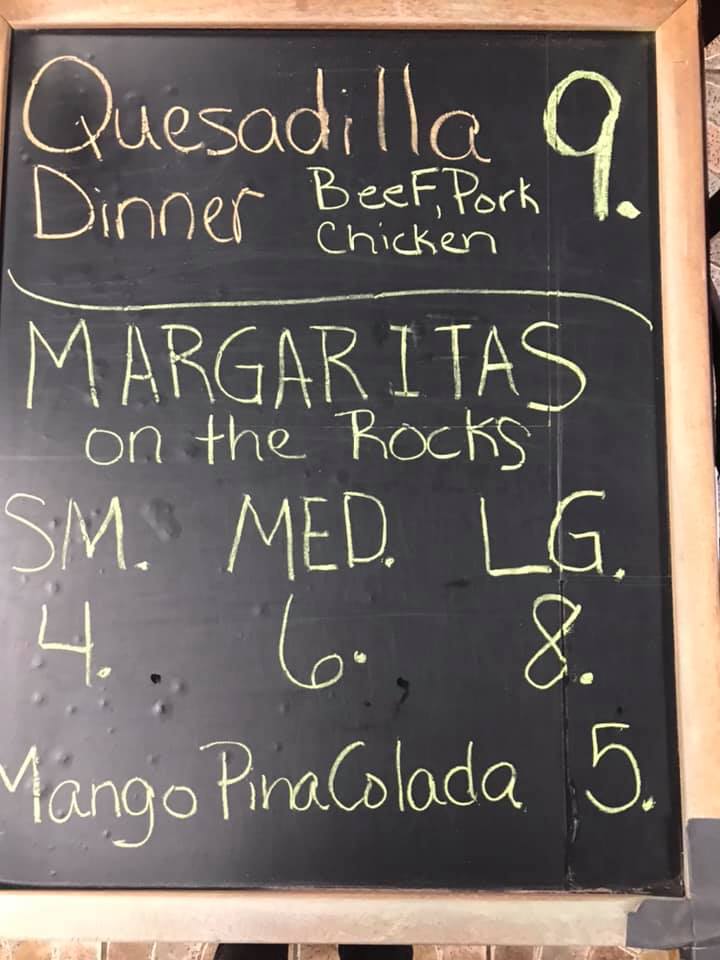 Quesadilla 9.
Dinner Beef, Pork
Chicken
MARGARITAS
on the Rocks
SM. MED. LG.
4. 6. 8.
Mango Pina Colada 5.